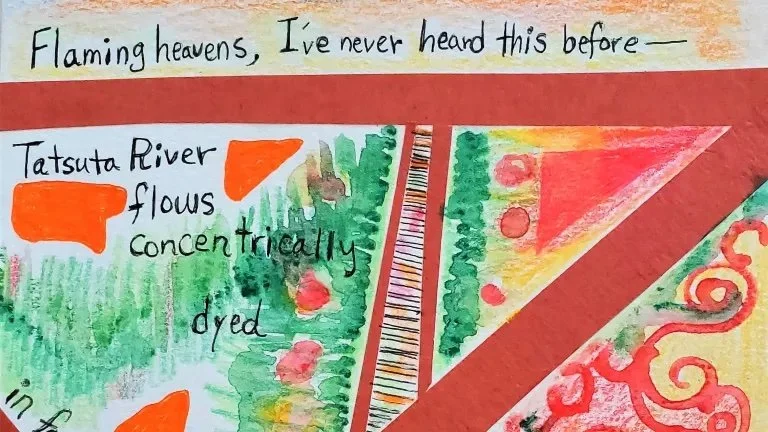 Flaming heavens, I've never heard this before—
Tatsuta River
flows
concentrically
dyed
in